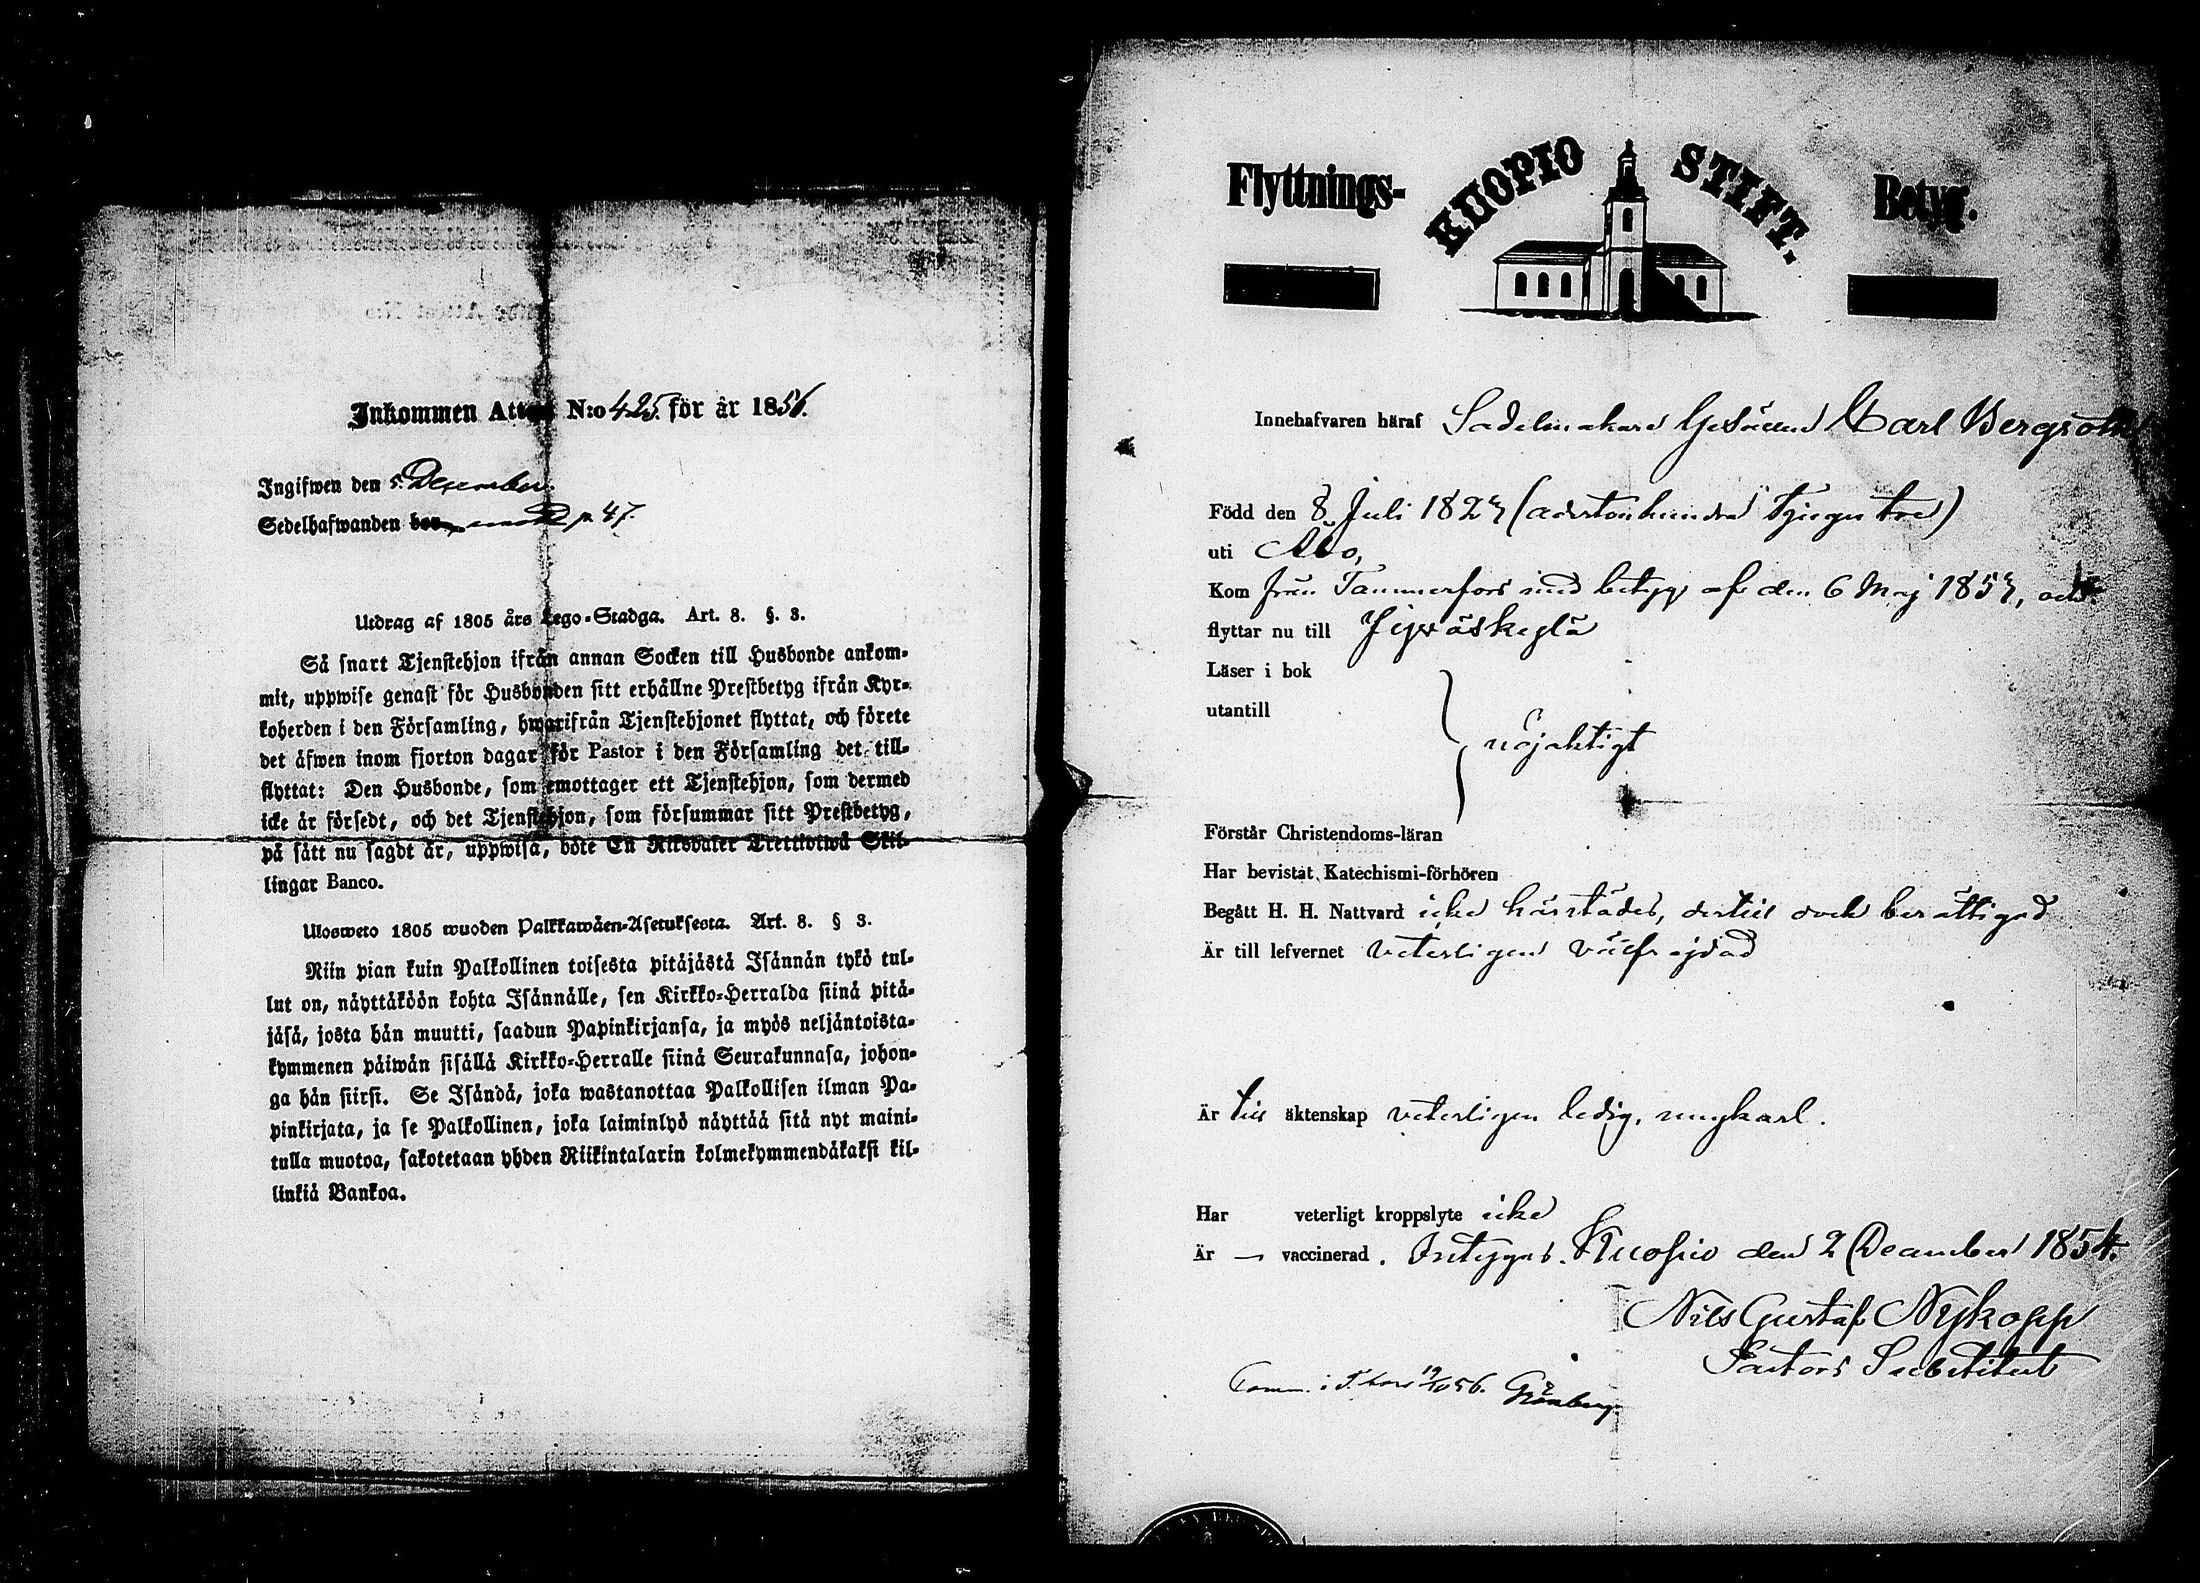 Inkommen Attest N:o 425. för år 1856.
Ingifwen den 5. December.
Sedelhafwanden p. 47.
Utdrag af 1805 års Lego-Stadga. Art. 8. §. 3.
Så snart Tjenstehjon ifrån annan Socken till Husbonde ankom-
mit, uppwise genast för Husbonden sitt erhållne Prestbetyg ifrån Kyr-
koherden i den Församling, hwarifrån Tjenstehjonet flyttat, och förete
det äfwen inom fjorton dagar för Pastor i den Församling det till-
flyttat: Den Husbonde, som emottager ett Tjenstehjon, som dermed
icke är försedt, och det Tjenstehjon, som försummar sitt Prestbetyg,
på sätt nu sagdt är, uppwisa, böte En Riksdaler Trettiotwå Skil-
lingar Banco.
Ulosweto 1805 wuoden Palkkawäen-Asetuksesta. Art. 8. § 3.
Niin pian kuin Palkollinen toisesta pitäjästä Isännän tykö tul-
lut on, näyttäköön kohta Isännälle, sen Kirkko-Herralda siinä pitä-
jäsä, josta hän muutti, saadun Papinkirjansa, ja myös neljäntoista-
kymmenen päiwän sisällä Kirkko-Herralle siinä Seurakunnasa, johon-
ga hän siirsi. Se Isändä, joka wastanottaa Palkollisen ilman Pa-
pinkirjata, ja se Palkollinen, joka laiminlyö näyttää sitä nyt maini-
tulla muotoa, sakotetaan yhden Riikintalarin kolmekymmendäkaksi kil-
linkiä Bankoa.
Flyttnings- KUOPIO STIFT. Betyg.
Innehafvaren häraf Sadelmakare Gesällen Carl Bergroth
Född den 8 Juli 1823 (adertonhundra tjugu tre)
uti Åbo,
Kom från Tammerfors med betyg af den 6 Maj 1853, och
flyttar nu till Jyväskylä
Läser i bok
utantill
nöjaktigt
Förstår Christendoms-läran
Har bevistat Katechismi-förhören
Begått H. H. Nattvard icke härstädes, dertill dock berättigad
Är till lefvernet veterligen välfrejdad
Är till äktenskap veterligen ledig, ungkarl.
Har veterligt kroppslyte icke
Är — vaccinerad. Intygas. Kuopio den 2 December 1854.
Nils Gustaf Nykopp
Pastors Substitut
Comm. i T. fors 19/10 56. Grönberg.